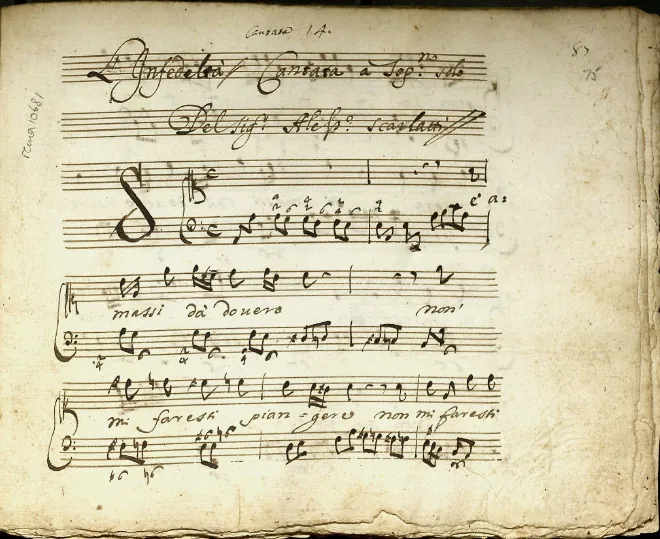 Cantata 14.
L'Infedeltà / Cantata à Sop.no solo
Del Sig.r Aless.o Scarlatti
S
è a=
massi dà dovero non
mi faresti pian=gere non mi faresti